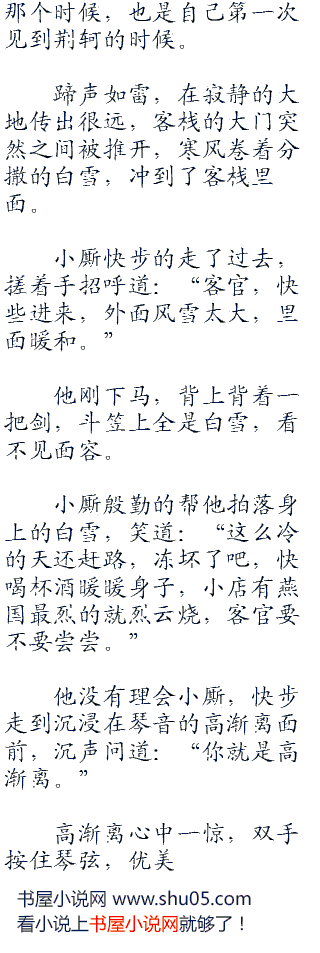 那个时候，也是自己第一次
见到荆轲的时候。
蹄声如雷，在寂静的大
地传出很远，客栈的大门突
然之间被推开，寒风卷着分
撒的白雪，冲到了客栈里
面。
小厮快步的走了过去，
搓着手招呼道：“客官，快
些进来，外面风雪太大，里
面暖和。”
他刚下马，背上背着一
把剑，斗笠上全是白雪，看
不见面容。
小厮殷勤的帮他拍落身
上的白雪，笑道：“这么冷
的天还赶路，冻坏了吧，快
喝杯酒暖暖身子，小店有燕
国最烈的就烈云烧，客官要
不要尝尝。”
他没有理会小厮，快步
走到沉浸在琴音的高渐离面
前，沉声问道：“你就是高
渐离。”
高渐离心中一惊，双手
按住琴弦，优美
书屋小说网 www.shu05.com
看小说上书屋小说网就够了！